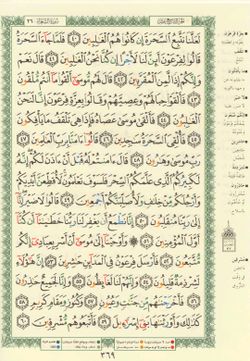 سُورَةُ الشُّعَرَاءِ ٢٦
لَعَلَّنَا نَتَّبِعُ ٱلسَّحَرَةَ إِن كَانُوا۟ هُمُ ٱلْغَٰلِبِينَ ٤٠ فَلَمَّا جَآءَ ٱلسَّحَرَةُ
قَالُوا۟ لِفِرْعَوْنَ أَئِنَّ لَنَا لَأَجْرًا إِن كُنَّا نَحْنُ ٱلْغَٰلِبِينَ ٤١ قَالَ نَعَمْ
وَإِنَّكُمْ إِذًا لَّمِنَ ٱلْمُقَرَّبِينَ ٤٢ قَالَ لَهُم مُّوسَىٰٓ أَلْقُوا۟ مَآ أَنتُم مُّلْقُونَ
٤٣ فَأَلْقَوْا۟ حِبَالَهُمْ وَعِصِيَّهُمْ وَقَالُوا۟ بِعِزَّةِ فِرْعَوْنَ إِنَّا لَنَحْنُ
ٱلْغَٰلِبُونَ ٤٤ فَأَلْقَىٰ مُوسَىٰ عَصَاهُ فَإِذَا هِىَ تَلْقَفُ مَا يَأْفِكُونَ
٤٥ فَأُلْقِىَ ٱلسَّحَرَةُ سَٰجِدِينَ ٤٦ قَالُوٓا۟ ءَامَنَّا بِرَبِّ ٱلْعَٰلَمِينَ ٤٧
رَبِّ مُوسَىٰ وَهَٰرُونَ ٤٨ قَالَ ءَامَنتُمْ لَهُۥ قَبْلَ أَنْ ءَاذَنَ لَكُمْ إِنَّهُۥ
لَكَبِيرُكُمُ ٱلَّذِى عَلَّمَكُمُ ٱلسِّحْرَ فَلَسَوْفَ تَعْلَمُونَ لَأُقَطِّعَنَّ أَيْدِيَكُمْ
وَأَرْجُلَكُم مِّنْ خِلَٰفٍ وَلَأُصَلِّبَنَّكُمْ أَجْمَعِينَ ٤٩ قَالُوا۟ لَا ضَيْرَ إِنَّآ
إِلَىٰ رَبِّنَا مُنقَلِبُونَ ٥٠ إِنَّا نَطْمَعُ أَن يَغْفِرَ لَنَا رَبُّنَا خَطَٰيَٰنَآ أَن كُنَّآ
أَوَّلَ ٱلْمُؤْمِنِينَ ٥١ وَأَوْحَيْنَآ إِلَىٰ مُوسَىٰٓ أَنْ أَسْرِ بِعِبَادِىٓ إِنَّكُم
مُّتَّبَعُونَ ٥٢ فَأَرْسَلَ فِرْعَوْنُ فِى ٱلْمَدَآئِنِ حَٰشِرِينَ ٥٣ إِنَّ هَٰٓؤُلَآءِ
لَشِرْذِمَةٌ قَلِيلُونَ ٥٤ وَإِنَّهُمْ لَنَا لَغَآئِظُونَ ٥٥ وَإِنَّا لَجَمِيعٌ حَٰذِرُونَ
٥٦ فَأَخْرَجْنَٰهُم مِّن جَنَّٰتٍ وَعُيُونٍ ٥٧ وَكُنُوزٍ وَمَقَامٍ كَرِيمٍ ٥٨
كَذَٰلِكَ وَأَوْرَثْنَٰهَا بَنِىٓ إِسْرَٰٓءِيلَ ٥٩ فَأَتْبَعُوهُم مُّشْرِقِينَ ٦٠
٣٦٩